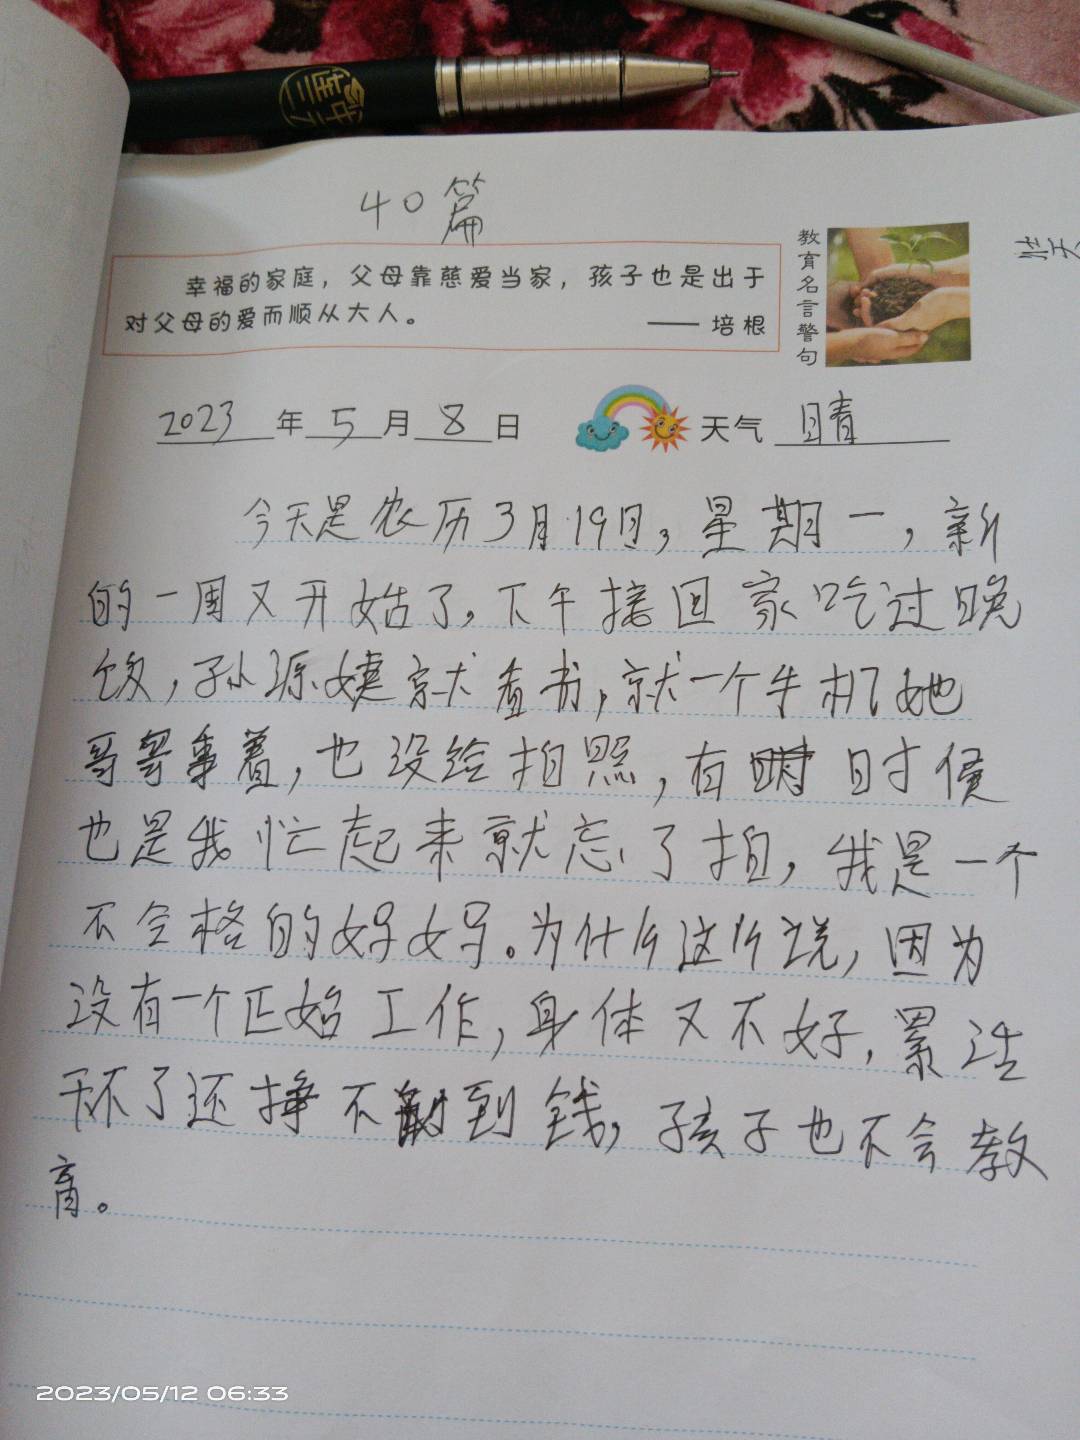 40篇
幸福的家庭，父母靠慈爱当家，孩子也是出于
对父母的爱而顺从大人。 —— 培根
教育名言警句
2023年5月8日 天气 晴
今天是农历3月19日，星期一，新
的一周又开始了，下午接回家吃过晚
饭，孙源婕就看书，就一个手机她
哥哥拿着，也没给拍照，有时候
也是我忙起来就忘了拍，我是一个
不合格的好妈。为什么这么说，因为
没有一个正始工作，身体又不好，累活
干不了还挣不到钱，孩子也不会教
育。
2023/05/12 06:33